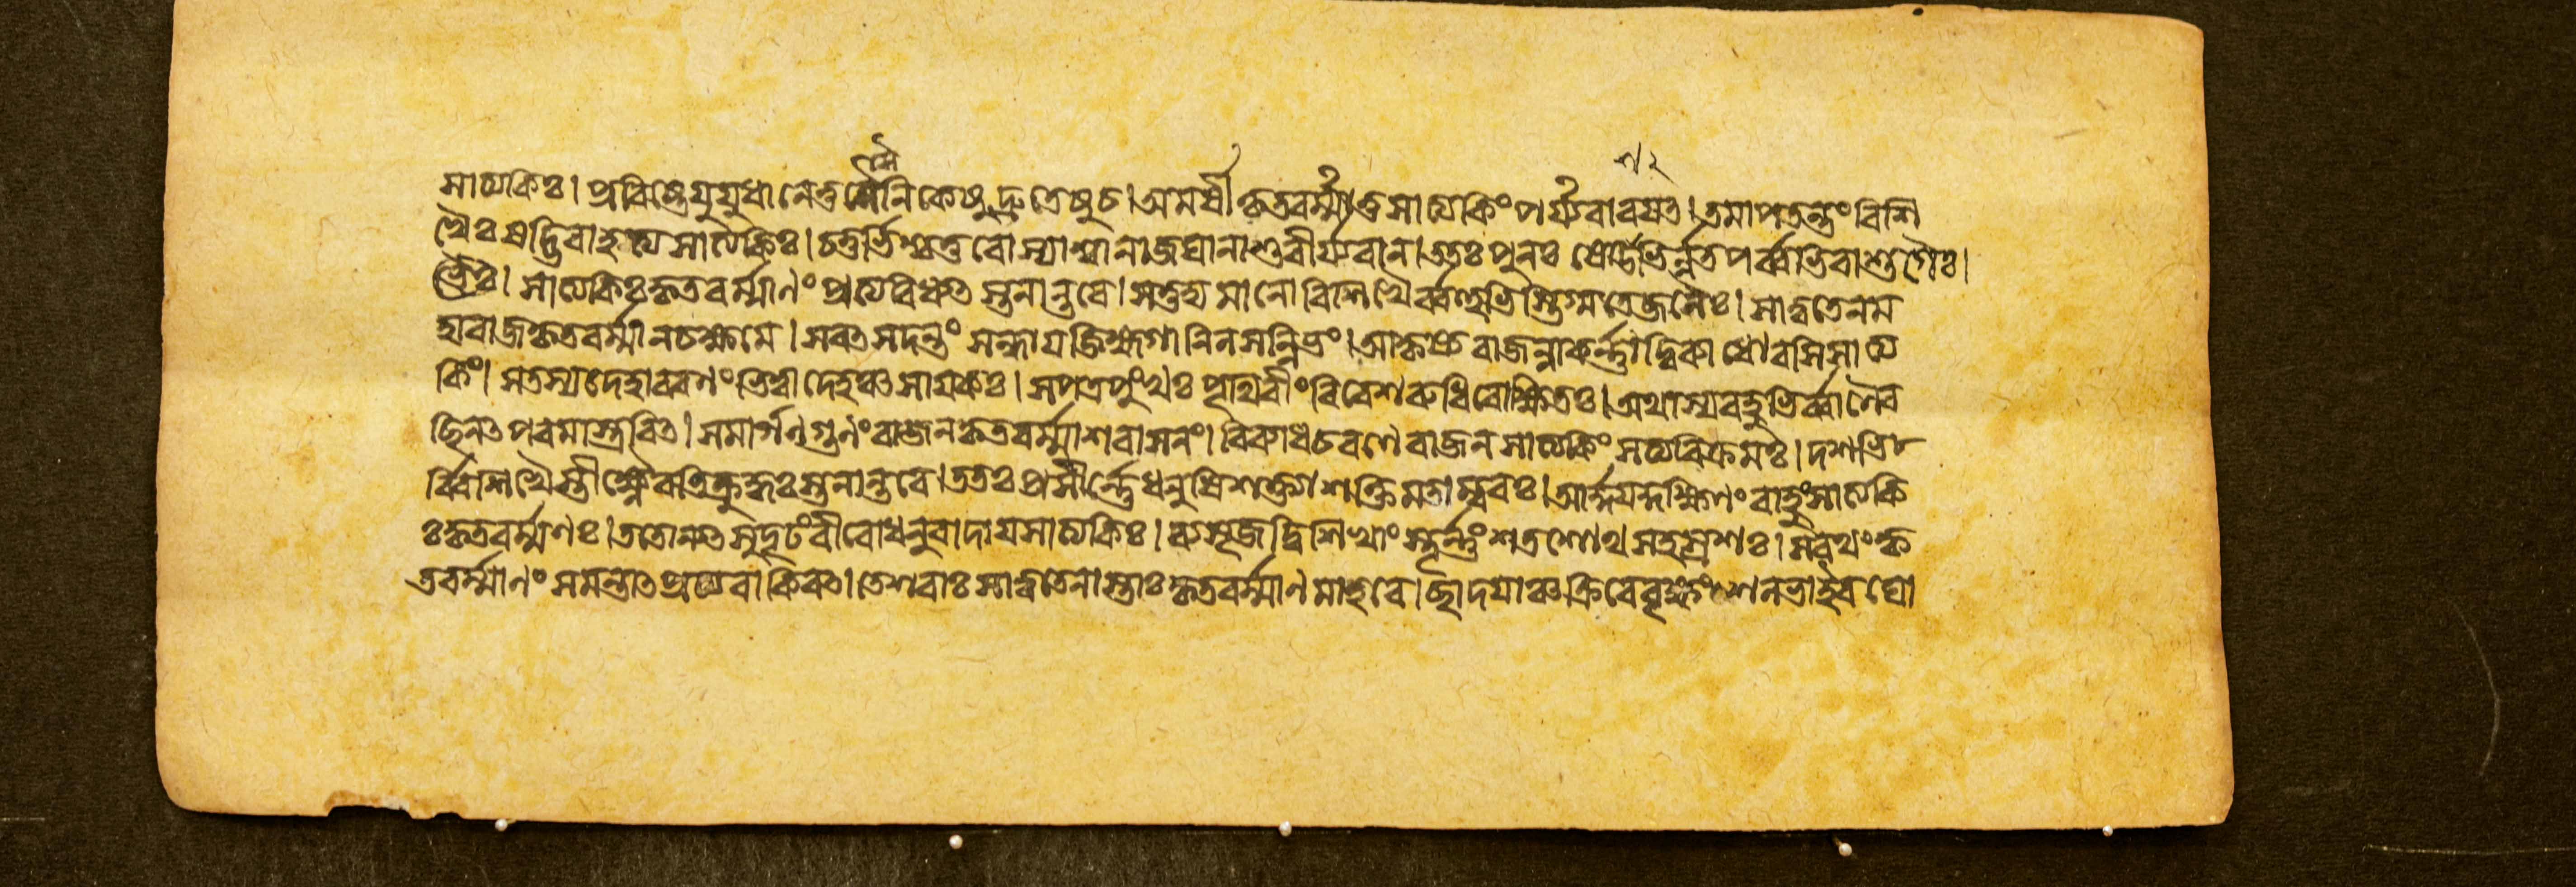 সাত্যকিঃ। প্রবিষ্টেযুযুধানেতুসৈনিকেষুদ্রুতেষুচ।অমর্ষীকৃতবর্ম্মাতুসাত্যকিংপর্য্যবারযৎ।তমাপতন্তংবিশি
খৈঃষড্ভিরাহত্যসাত্যকিঃ।চতুর্ভিশ্চতুরোস্যাশ্বানাজঘানাশুবীর্য্যবান।ততঃপুনঃষোডশভির্ন্নতপর্ব্বভিরাশুগৈঃ।
সাত্যকিঃকৃতবর্ম্মাণং প্রত্যবিধ্যৎ স্তনান্তরে।সতুদ্যমানোবিশিখৈর্ব্বহুভিস্তিগ্মতেজনৈঃ।সাত্বতেনম
হারাজকৃতবর্ম্মানচক্ষমে।সবৎসদন্তং সন্ধাযজিহ্মগানিলসন্নিভং।আকৃষ্যরাজন্নাকর্ন্নাদ্বিব্যাধোরসিসাত্য
কিং। সতস্যদেহাবরণংভিত্বাদেহঞ্চসাযকঃ। সপত্রপুংখঃপৃথিবীংবিবেশরুধিরোক্ষিতঃ।অথাস্যবহুভির্ব্বাণৈর
চ্ছিনৎপরমাস্ত্রবিৎ। সমার্গণগুণংরাজনকৃতবর্ম্মাশরাসনং।বিব্যাধচরণেরাজনসাত্যকিংসত্যবিক্রমঃ।দশভি
র্ব্বিশিখৈস্তীক্ষ্ণৈরভিক্রুদ্ধঃস্তনান্তরে।ততঃপ্রশীর্ন্নেধনুষিশক্ত্যাশক্তিমতাম্বরঃ।আর্দ্দযদ্দক্ষিণংবাহুংসাত্যকি
ঃকৃতবর্ম্মণঃ।ততোন্যৎসুদৃঢংবীরোধনুরাদাযসাত্যকিঃ। ব্যসৃজদ্বিশিখাংস্তূর্ন্নংশতশোথসহস্রশঃ।সরথংকৃ
তবর্ম্মাণংসমন্তাৎপ্রত্যবাকিরৎ।তেশরাঃসাত্বতেনাস্তাঃকৃতবর্ম্মাণমাহবে।ছাদযাঞ্চক্রিরে